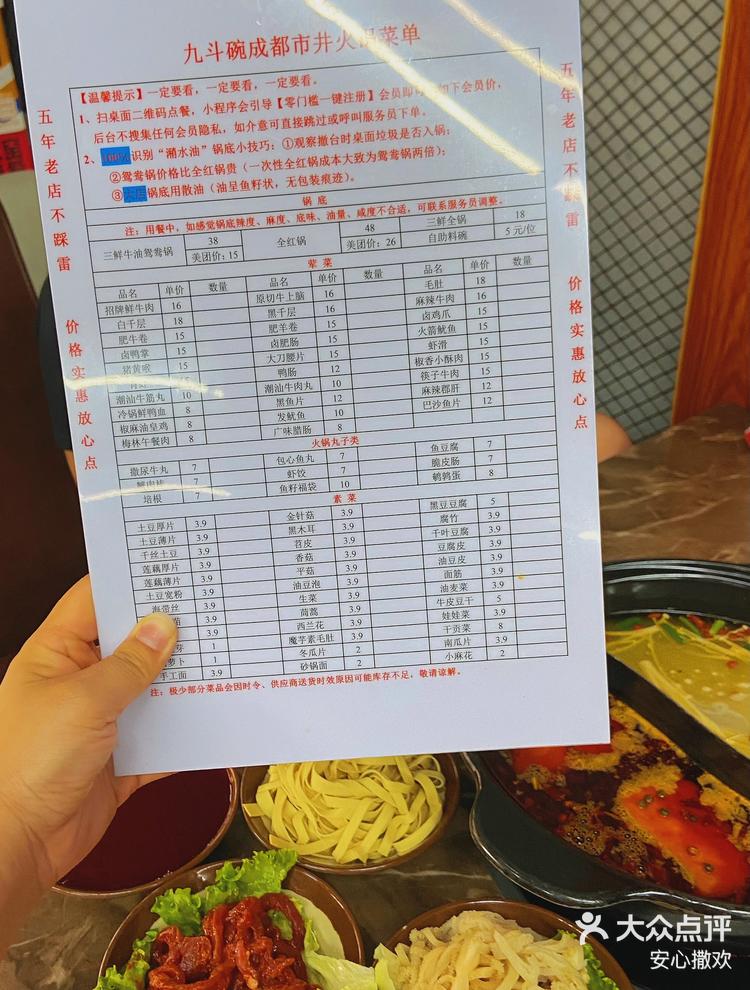 九斗碗成都市井火锅菜单
五年老店不踩雷 价格实惠放心点
五年老店不踩雷 价格实惠放心点
【温馨提示】一定要看，一定要看，一定要看。
1、扫桌面二维码点餐，小程序会引导【零门槛一键注册】会员即可 如下会员价，
后台不搜集任何会员隐私，如介意可直接跳过或呼叫服务员下单。
2、100%识别“潲水油”锅底小技巧：①观察撤台时桌面垃圾是否入锅；
②鸳鸯锅价格比全红锅贵（一次性全红锅成本大致为鸳鸯锅两倍）；
③ 锅底用散油（油呈鱼籽状，无包装痕迹）。
锅底
注：用餐中，如感觉锅底辣度、麻度、底味、油量、咸度不合适，可联系服务员调整。
三鲜牛油鸳鸯锅 38 美团价：15 全红锅 48 美团价：26 三鲜全锅 18
自助料碗 5元/位
荤菜
品名 单价 数量 品名 单价 数量 品名 单价 数量
招牌鲜牛肉 16 原切牛上脑 16 毛肚 18
白千层 18 黑千层 16 麻辣牛肉 16
肥牛卷 15 肥羊卷 15 卤鸡爪 15
卤鸭掌 15 卤肥肠 15 火箭鱿鱼 15
猪黄喉 15 大刀腰片 15 虾滑 15
鸭肠 12 椒香小酥肉 15
潮汕牛筋丸 10 潮汕牛肉丸 10 筷子牛肉 15
冷锅鲜鸭血 8 黑鱼片 12 麻辣郡肝 12
椒麻油皇鸡 8 发鱿鱼 10 巴沙鱼片 12
梅林午餐肉 8 广味腊肠 8
火锅丸子类
撒尿牛丸 7 包心鱼丸 7 鱼豆腐 7
蟹肉棒 7 虾饺 7 脆皮肠 7
培根 7 鱼籽福袋 10 鹌鹑蛋 8
素菜
土豆厚片 3.9 金针菇 3.9 黑豆豆腐 5
土豆薄片 3.9 黑木耳 3.9 腐竹 3.9
千丝土豆 3.9 苕皮 3.9 千叶豆腐 3.9
莲藕厚片 3.9 香菇 3.9 豆腐皮 3.9
莲藕薄片 3.9 平菇 3.9 油豆皮 3.9
土豆宽粉 3.9 油豆泡 3.9 面筋 3.9
海带丝 3.9 生菜 3.9 油麦菜 3.9
3.9 茼蒿 3.9 牛皮豆干 5
3.9 西兰花 3.9 娃娃菜 3.9
芽 1 魔芋素毛肚 3.9 干贡菜 8
萝卜 1 冬瓜片 2 南瓜片 3.9
手工面 3.9 砂锅面 2 小麻花 2
注：极少部分菜品会因时令、供应商送货时效原因可能库存不足，敬请谅解。
大众点评
安心撒欢